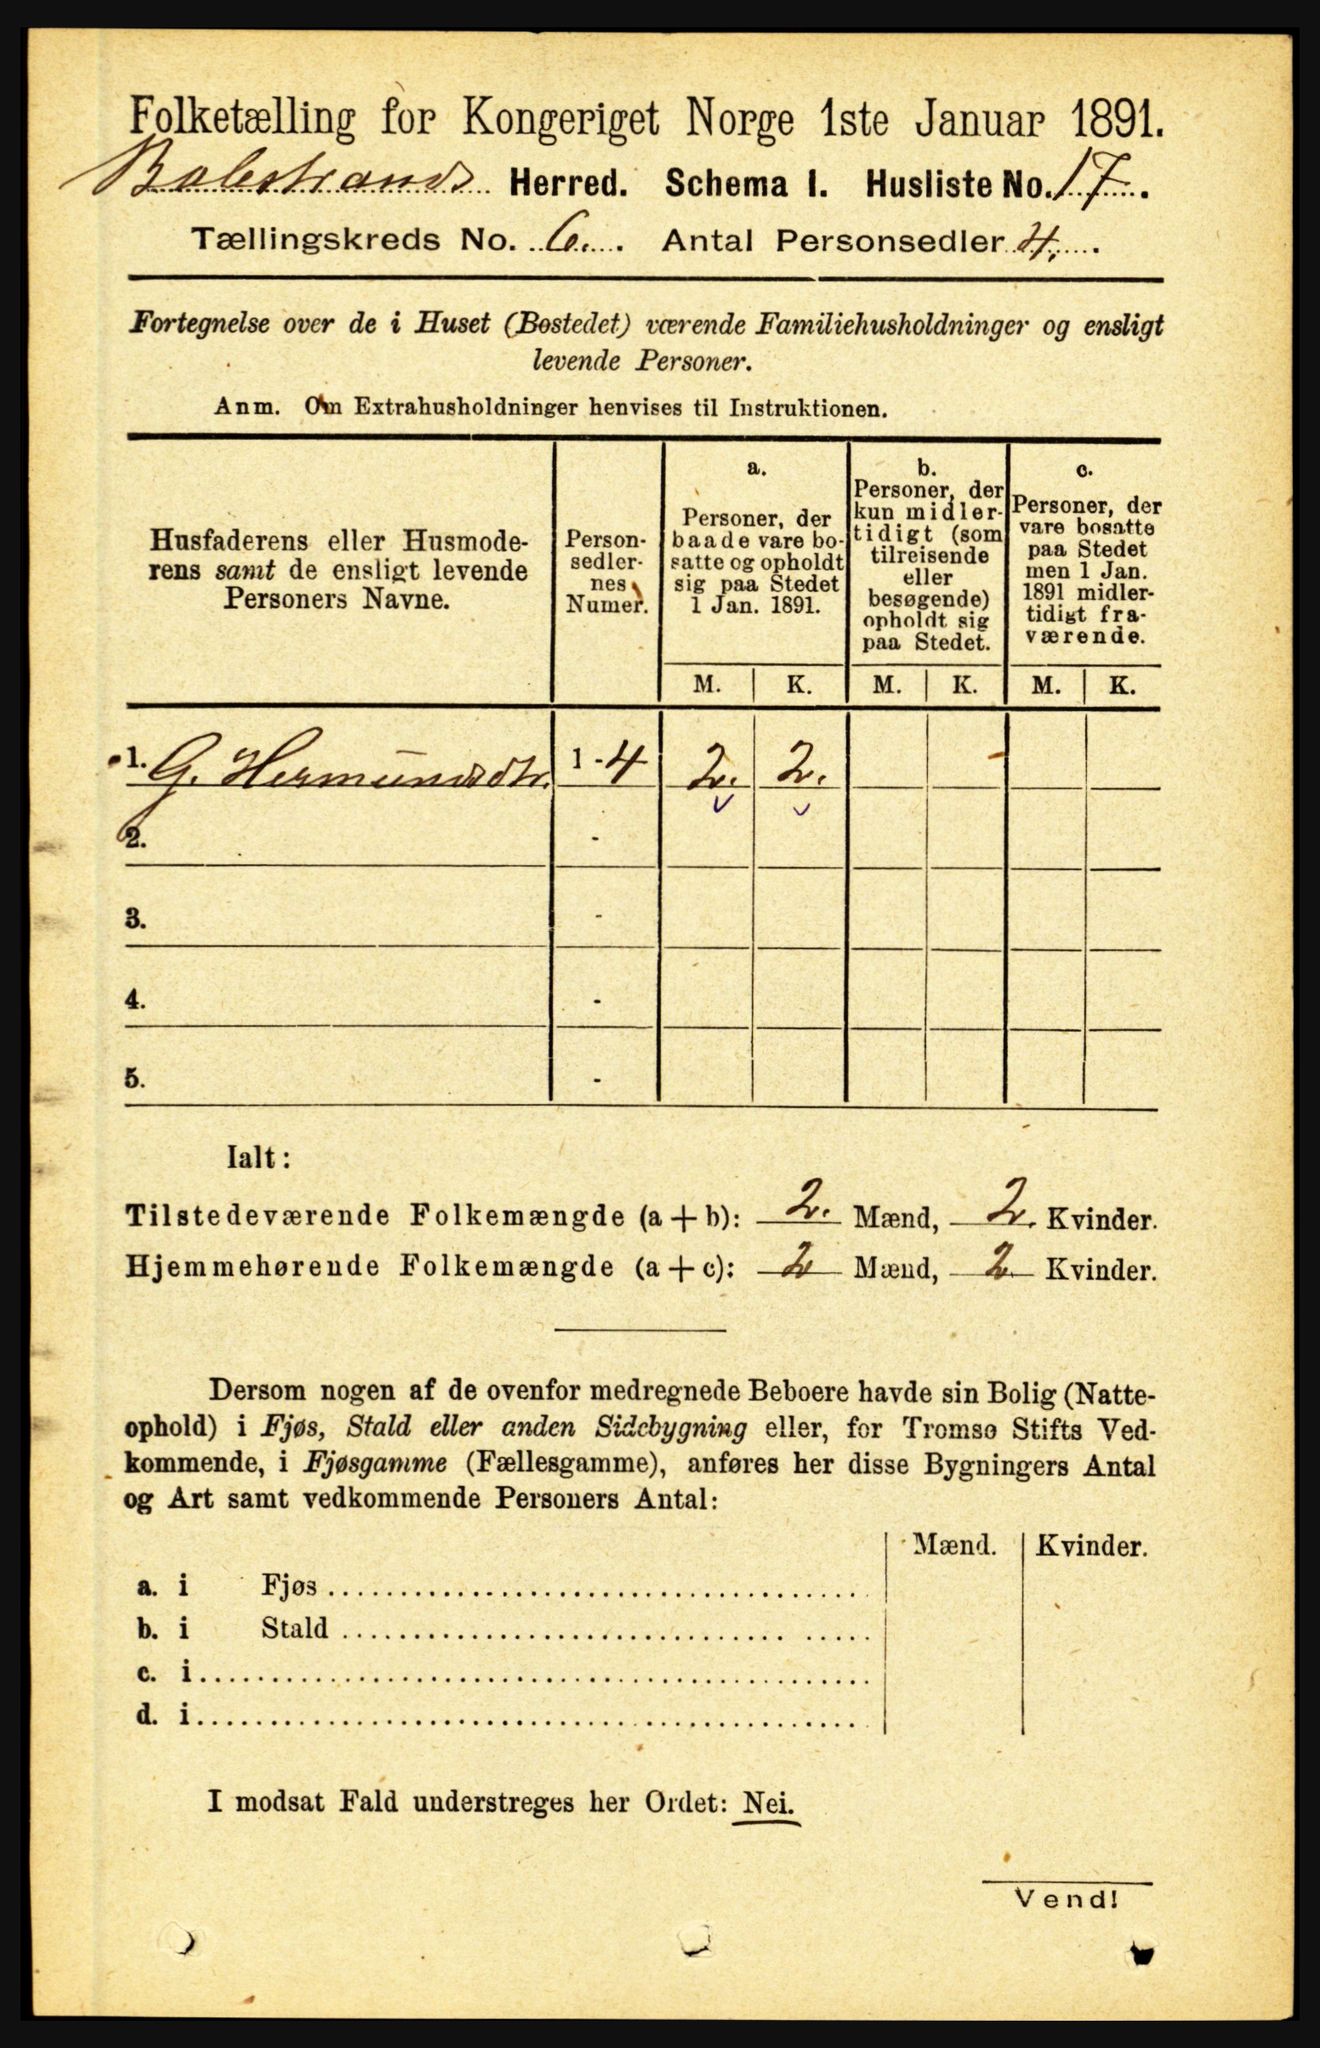 Folketælling for Kongeriget Norge 1ste Januar 1891.
Balestrands Herred. Schema I. Husliste No. 17.
Tællingskreds No. 6. Antal Personsedler 4.
Fortegnelse over de i Huset (Bostedet) værende Familiehusholdninger og ensligt
levende Personer.
Anm. Om Extrahusholdninger henvises til Instruktionen.
Husfaderens eller Husmode-
rens samt de ensligt levende
Personers Navne.
Person-
sedler-
nes
Numer.
a.
Personer, der
baade vare bo-
satte og opholdt
sig paa Stedet
1 Jan. 1891.
b.
Personer, der
kun midler-
tidigt (som
tilreisende
eller
besøgende)
opholdt sig
paa Stedet.
c.
Personer, der
vare bosatte
paa Stedet
men 1 Jan.
1891 midler-
tidigt fra-
værende.
M. K. M. K. M. K.
1. G. Hermundsdtr. 1 - 4 2. 2.
2. -
3. -
4. -
5. -
Ialt:
Tilstedeværende Folkemængde (a + b): 2. Mænd, 2. Kvinder.
Hjemmehørende Folkemængde (a + c): 2 Mænd, 2 Kvinder.
Dersom nogen af de ovenfor medregnede Beboere havde sin Bolig (Natte-
ophold) i Fjøs, Stald eller anden Sidebygning eller, for Tromsø Stifts Ved-
kommende, i Fjøsgamme (Fællesgamme), anføres her disse Bygningers Antal
og Art samt vedkommende Personers Antal:
Mænd. Kvinder.
a. i Fjøs
b. i Stald
c. i
d. i
I modsat Fald understreges her Ordet: Nei.
Vend!